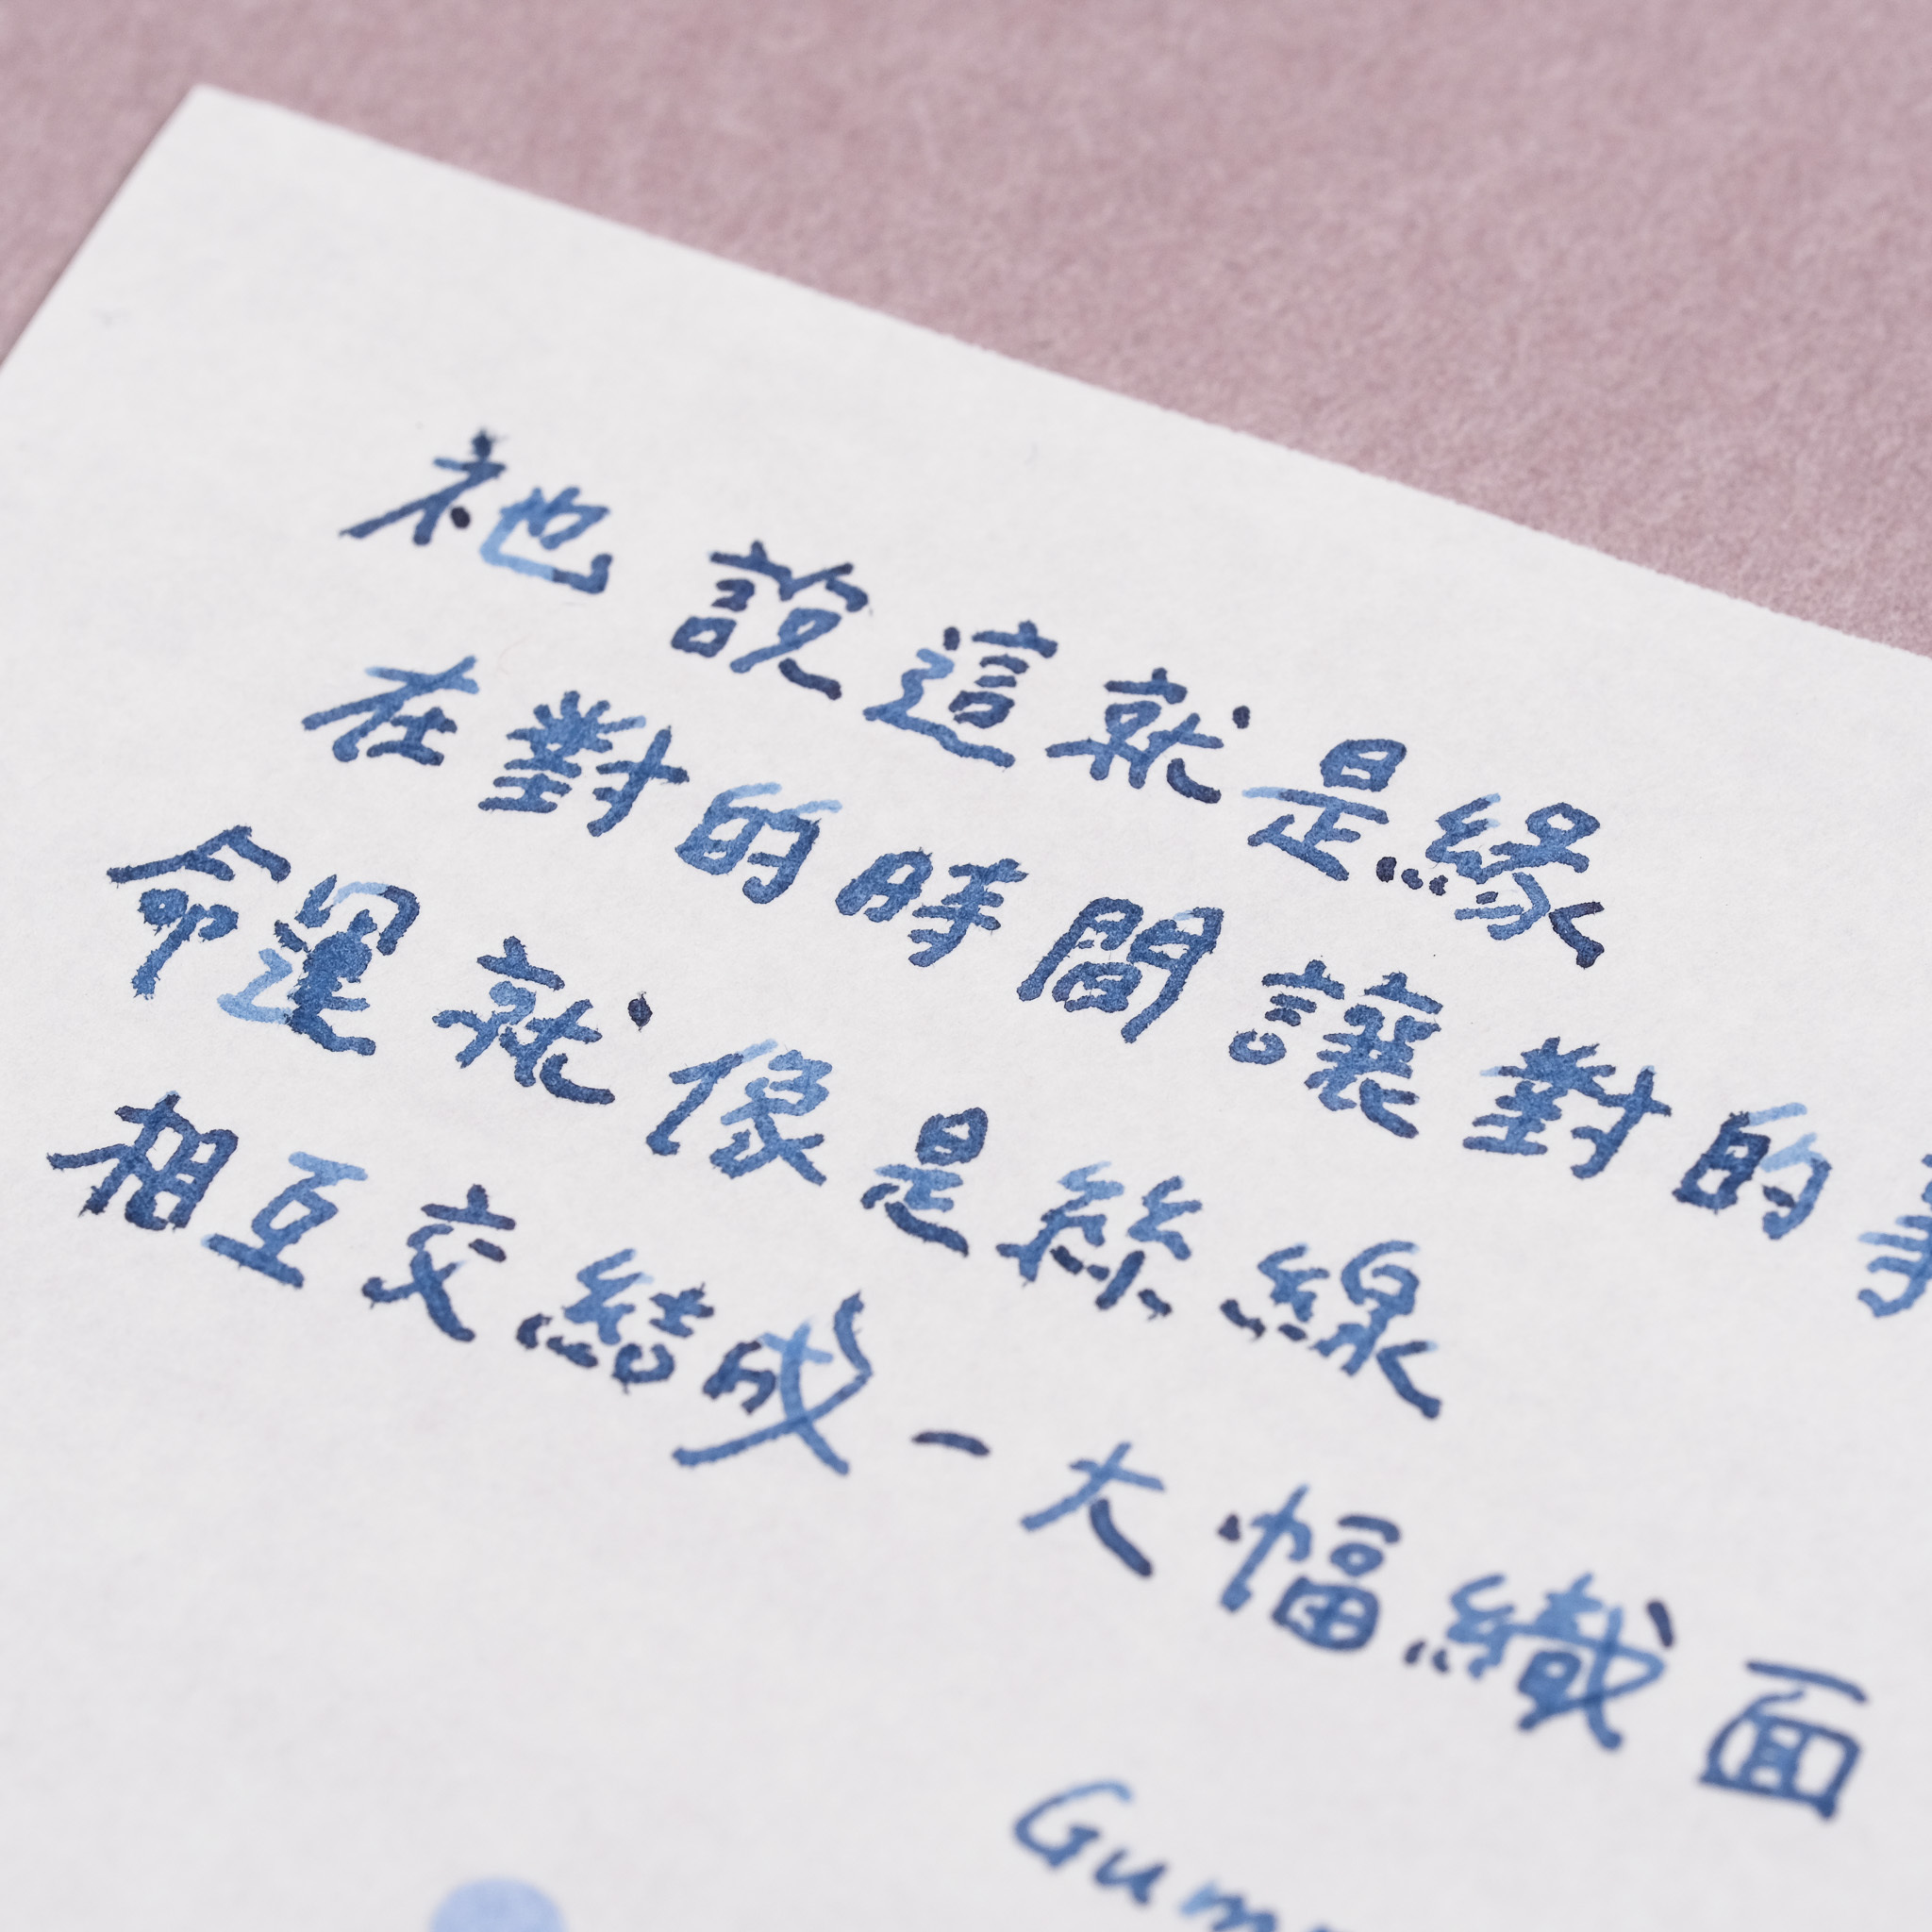 祂說這就是緣
在對的時間讓對的
命運就像是絲線
相互交結成一大幅織面
Gum